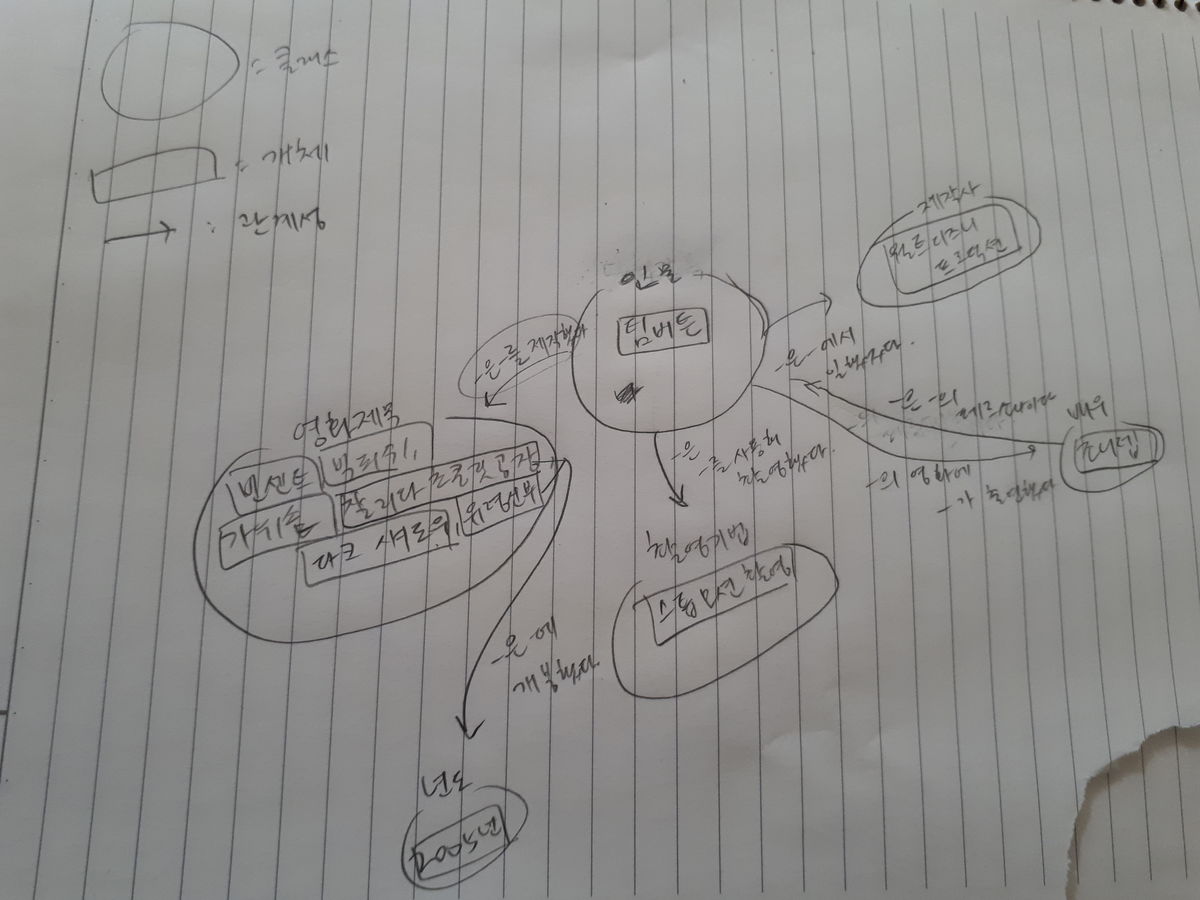 = 클래스
= 개체
: 관계성
제작사
월트디즈니
프로덕션
인물
팀버튼
-은 -를 제작했다
-은 -에서
일했었다.
-은 -의
페르소나이다
배우
조니뎁
-의 영화에
-가 출연했다
-은
-를 사용해
촬영했다.
영화제목
빈센트
빅피쉬,
가위손
찰리와 초콜릿공장,
다크 섀도우,
유령신부
촬영기법
스톱모션 촬영
-은 -에
개봉했다.
년도
2005년